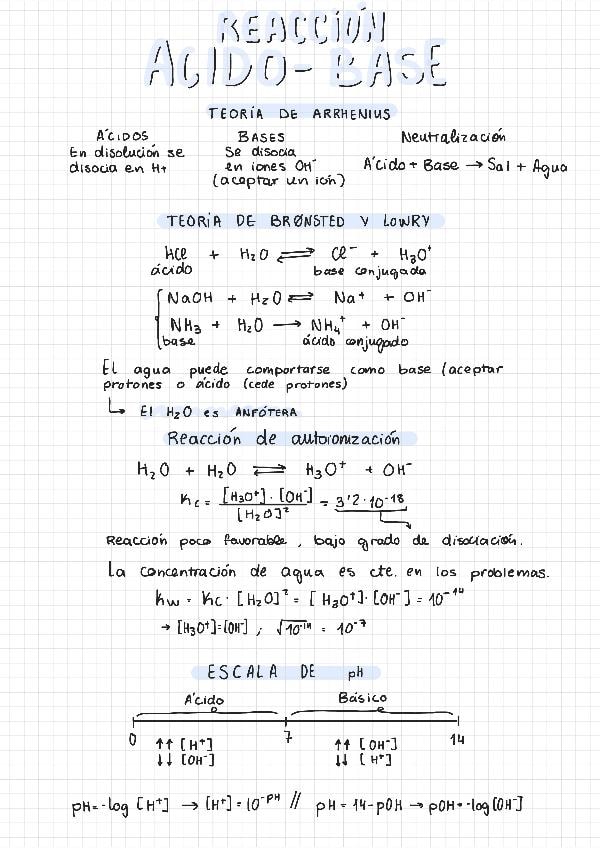 REACCIÓN
ÁCIDO-BASE
TEORÍA DE ARRHENIUS
ÁCIDOS
En disolución se
disocia en H+
BASES
Se disocia
en iones OH⁻
(aceptar un ión)
Neutralización
Ácido + Base → Sal + Agua
TEORÍA DE BRØNSTED Y LOWRY
HCl + H₂O ⇌ Cl⁻ + H₃O⁺
ácido base conjugada
NaOH + H₂O ⇌ Na⁺ + OH⁻
NH₃ + H₂O → NH₄⁺ + OH⁻
base ácido conjugado
El agua puede comportarse como base (aceptar
protones o ácido (cede protones)
↳ El H₂O es ANFÓTERA
Reacción de autoionización
H₂O + H₂O ⇌ H₃O⁺ + OH⁻
Kc = [H₃O⁺]·[OH⁻] / [H₂O]² = 3'2·10⁻¹⁸
Reacción poco favorable, bajo grado de disociación.
La concentración de agua es cte. en los problemas.
Kw = Kc · [H₂O]² = [H₃O⁺]·[OH⁻] = 10⁻¹⁴
→ [H₃O⁺]=[OH⁻] ; √10⁻¹⁴ = 10⁻⁷
ESCALA DE pH
Ácido Básico
0 7 14
↑↑ [H⁺] ↑↑ [OH⁻]
↓↓ [OH⁻] ↓↓ [H⁺]
pH=-log [H⁺] → [H⁺]=10⁻ᵖᴴ // pH = 14-pOH → pOH=-log[OH⁻]